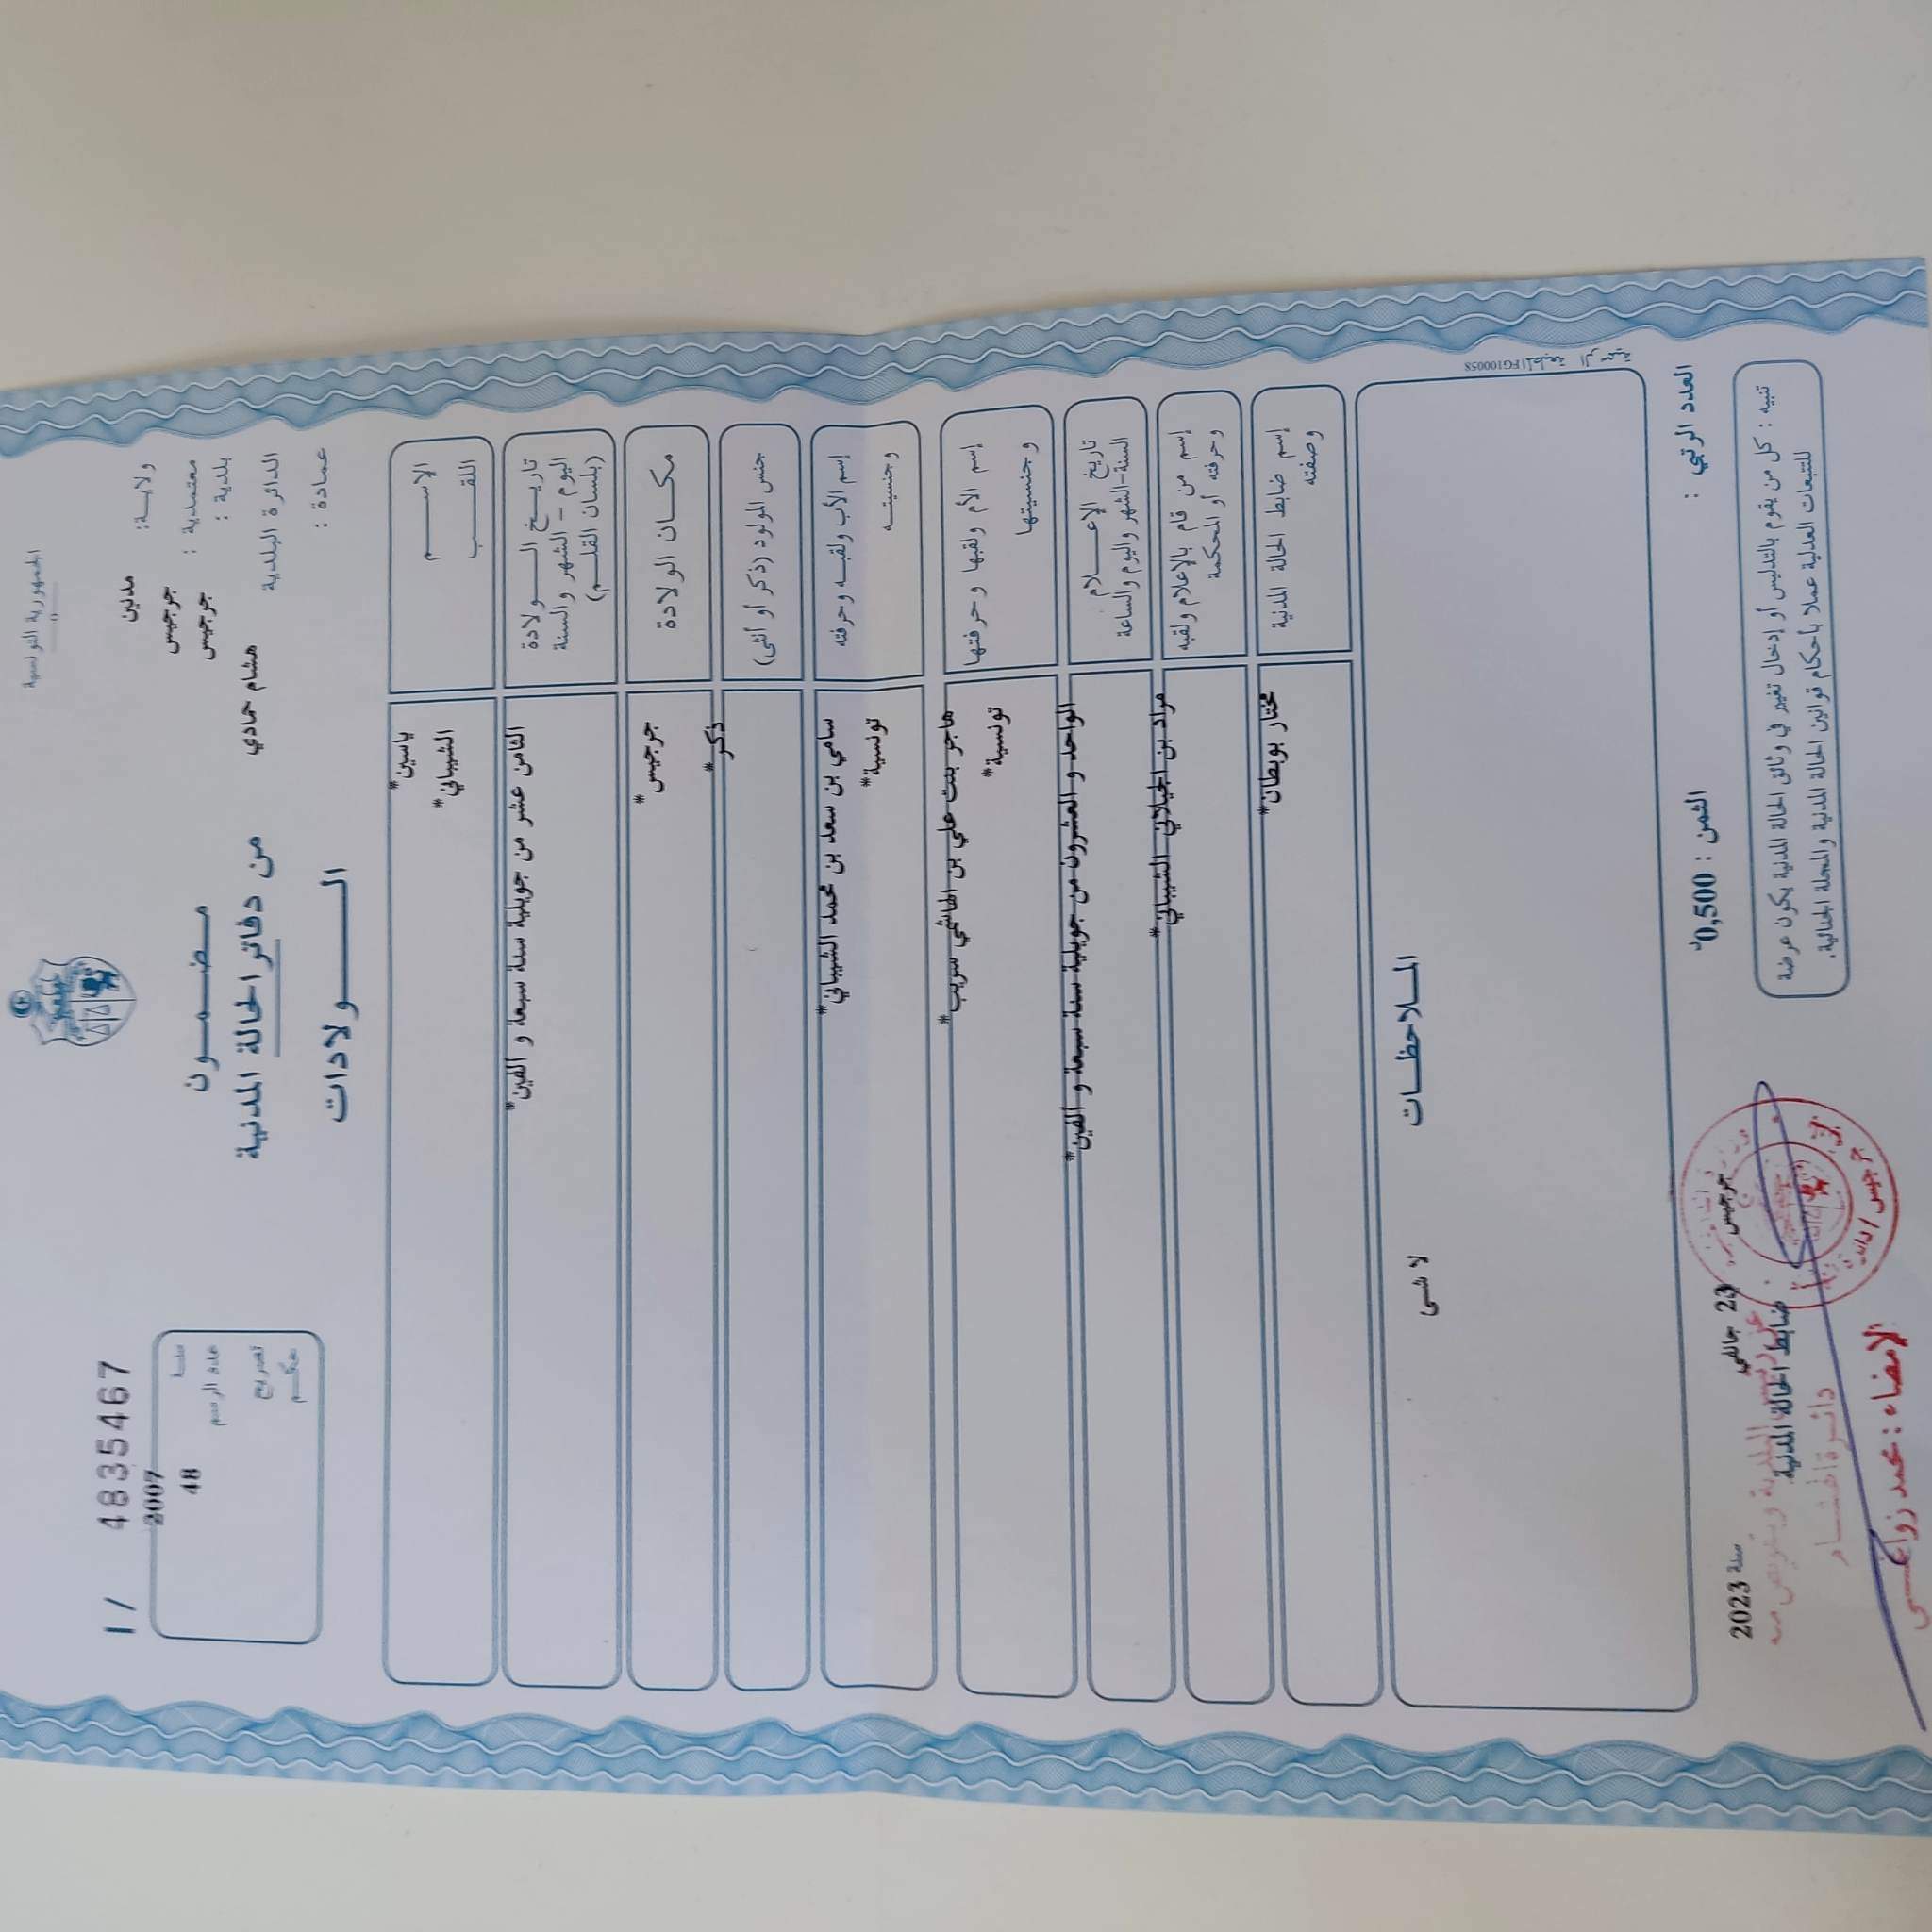 الجمهورية التونسية
ولاية: مدنين
معتمدية : جرجيس
بلدية : جرجيس
الدائرة البلدية هشام حمادي
عمادة :
مضمون
من دفاتر الحالة المدنية
الولادات
I / 4835467
سنة 2007
عدد الرسم 48
تصريح
حكم
الاسم ياسين*
اللقب الشيباني*
تاريخ الولادة
اليوم - الشهر والسنة
(بلسان القلم)
الثامن عشر من جويلية سنة سبعة و الفين*
مكان الولادة جرجيس*
جنس المولود (ذكر أو أنثى) ذكر*
إسم الأب ولقبه وحرفته سامي بن سعد بن محمد الشيباني*
وجنسيته تونسية*
إسم الأم ولقبها وحرفتها هاجر بنت علي بن الهاشمي سريب*
وجنسيتها تونسية*
تاريخ الإعلام
السنة-الشهر واليوم والساعة
الواحد و العشرون من جويلية سنة سبعة و الفين*
إسم من قام بالإعلام ولقبه
وحرفته أو المحكمة
مراد بن الجيلاني الشيباني*
إسم ضابط الحالة المدنية
وصفته
مختار بوبطان*
الملاحظات
لا شى
FG100058 المطبعة الرسمية
العدد الرتبي :
الثمن : 0,500د
جرجيس 23 جانفي سنة 2023
ضابط الحالة المدنية
عن رئيس البلدية وبتفويض منه
دائرة هشام
الامضاء : محمد زواغي
تنبيه : كل من يقوم بالتدليس أو إدخال تغيير في وثائق الحالة المدنية يكون عرضة
للتتبعات العدلية عملا بأحكام قوانين الحالة المدنية والمجلة الجنائية.